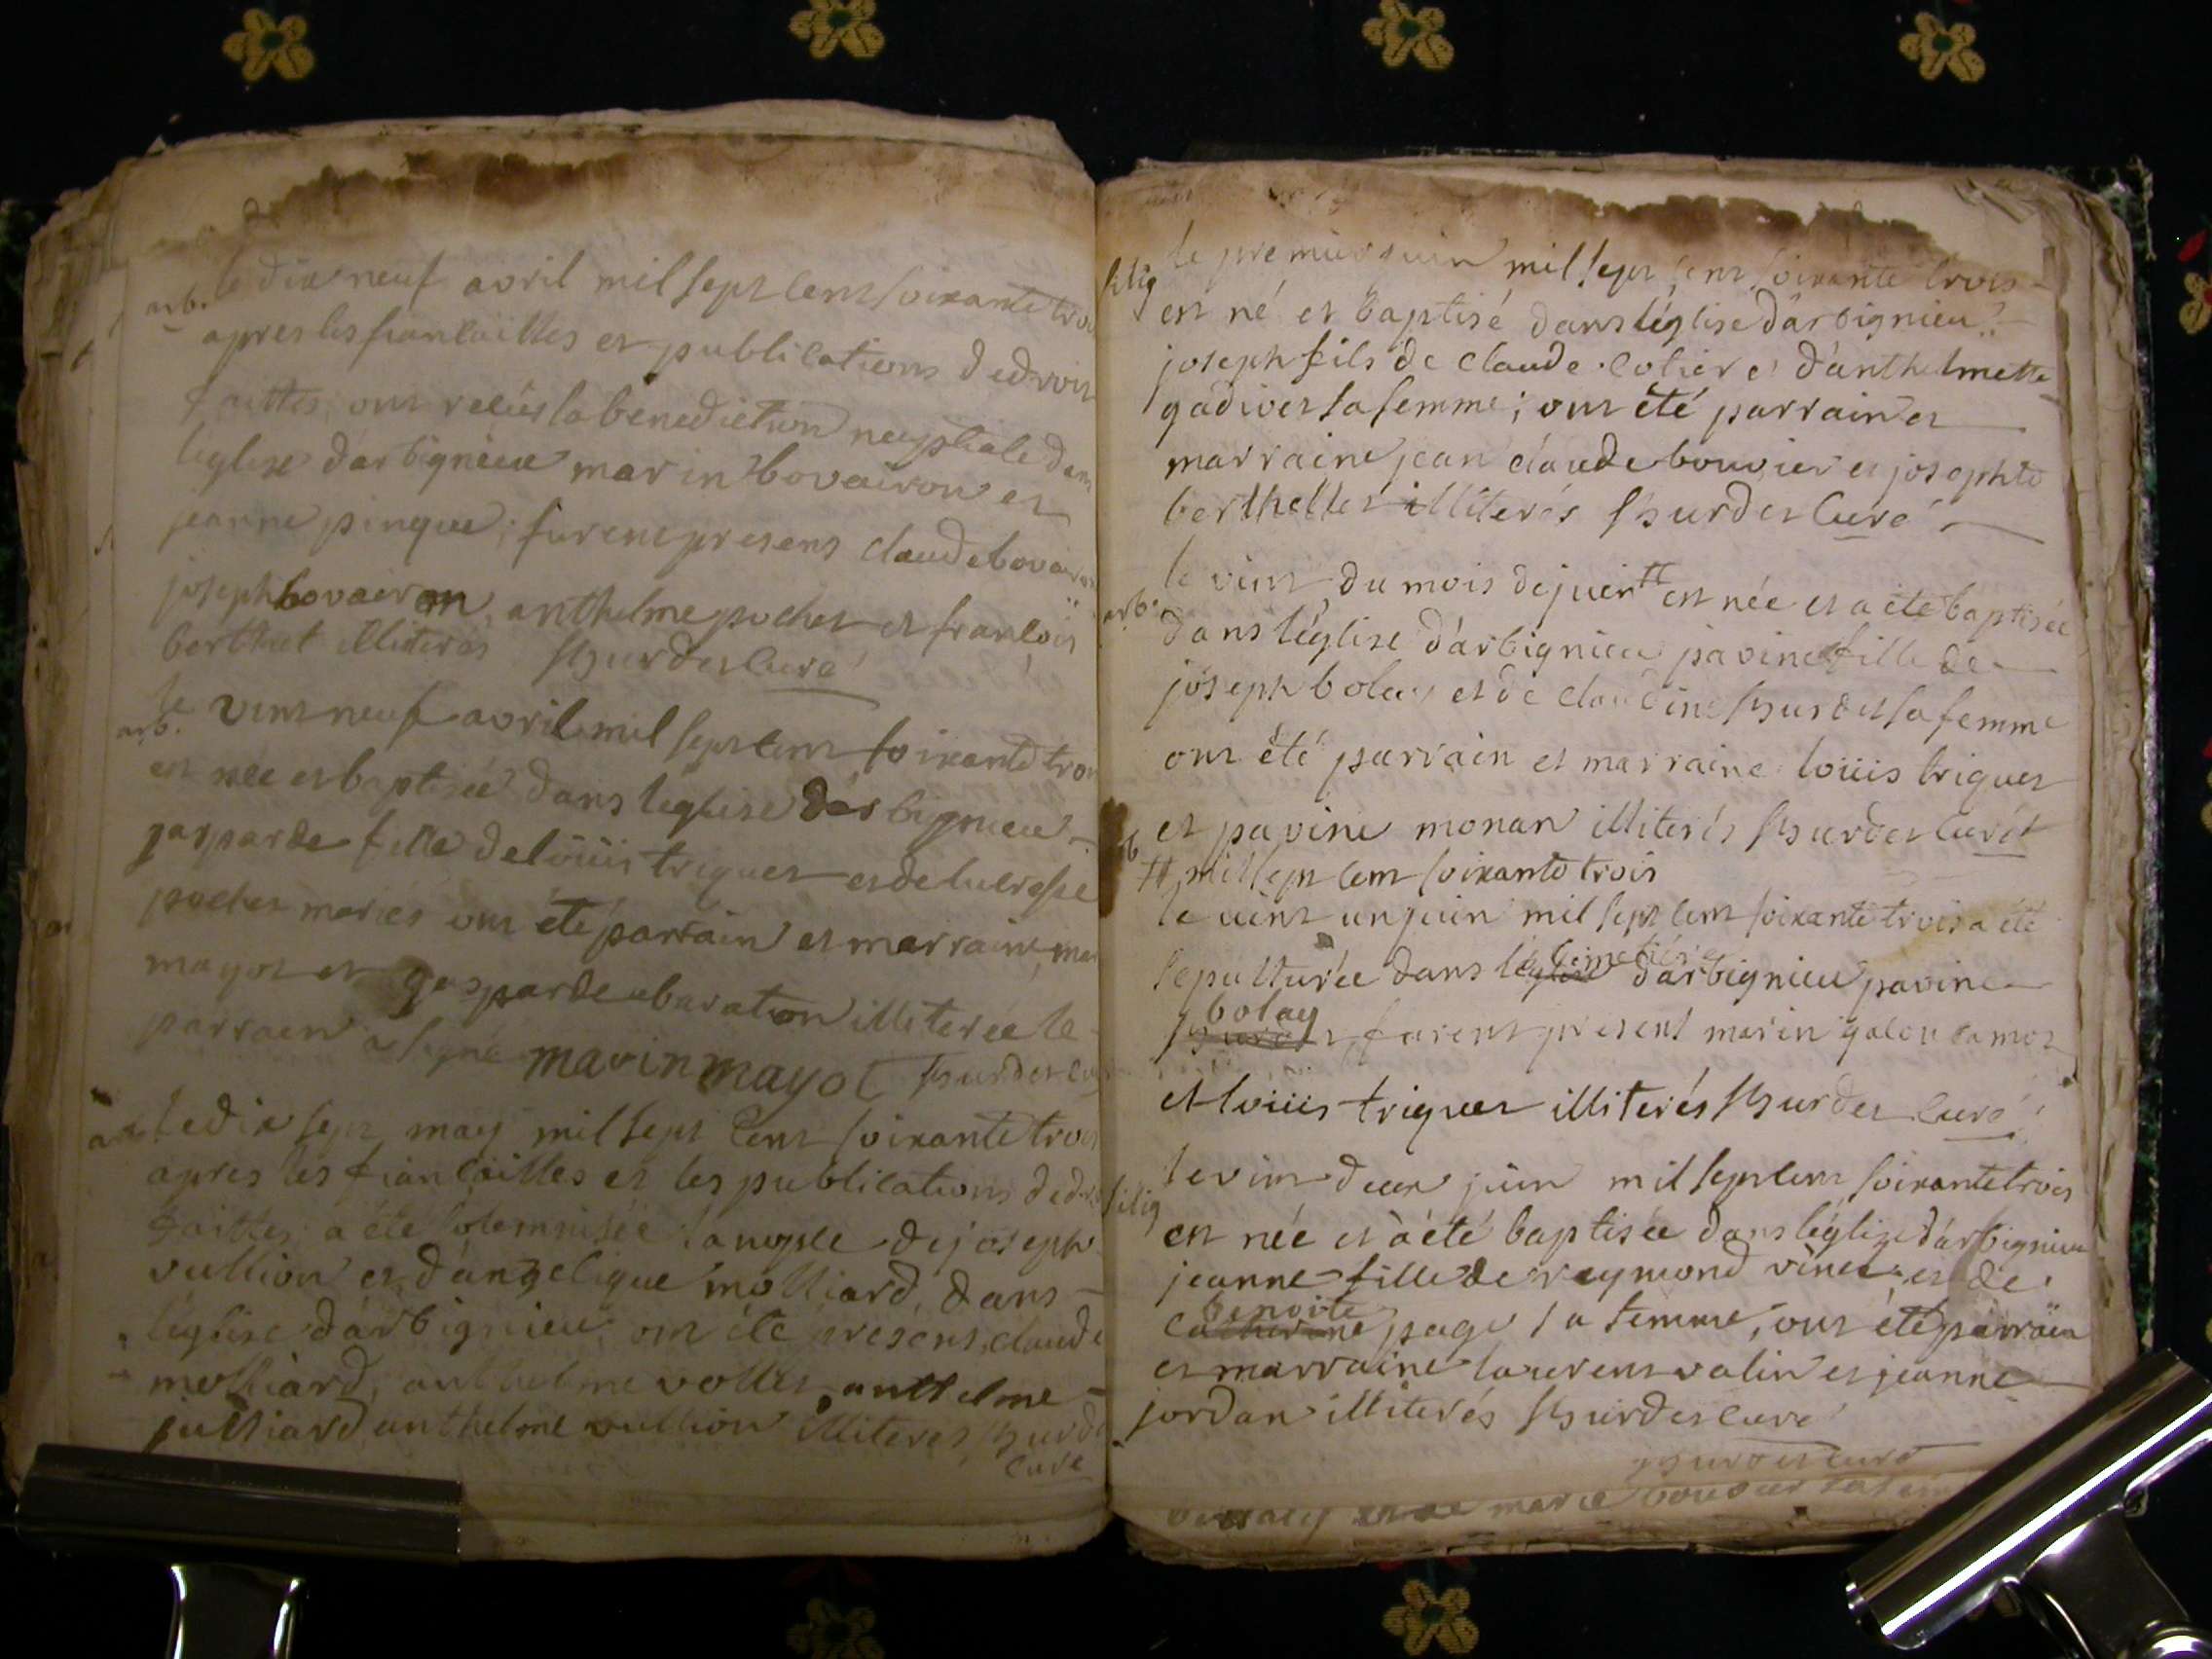 arb. le dix neuf avril mil sept cent soixante troi
apres les fiancailles et publications de droit
faittes, ont recus la benediction nuptiale dans
leglise d'arbignieu marin bovairon et
jeanne pinque; furent presens claude bovairon
joseph bovairon, anthelme pochet et francois
berthet illiteres hurdet curé
arb. le vint neuf avril mil sept cent soixante troi
est née et baptisée dans léglise dárbignieu
gasparde fille de loüis triquet et de lucresse
pochet mariés ont été parrain et marraine, mar
mayot et gasparde baraton illiterée le
parrain a signé marin mayot hurdet curé
arb le dix sept may mil sept cent soixante trois
apres les fiancailles et les publications de droit
faittes a été solemnisée la nopce de joseph
vullion et d'angelique molliard, dans
léglise dárbignieu, ont été presens, claude
molliard, anthelme vollet, anthelme
julliard anthelme vullion illiteres, hurdet
curé
filig le premier juin mil sept cent soixante trois
est né et baptisé dans léglise dárbignieu
joseph fils de claude cotier et dánthelmette
gadivet sa femme; ont été parrain et
marraine jean claude bouvier et josephte
berthellet illiterés hurdet curé
arb. le vint du mois de juin # est née et a été baptisée
dans léglise dárbignieu pavine fille de
joseph bolay et de claudine hurdet sa femme
ont été parrain et marraine loüis triquet
et pavine monan illiterés hurdet curé
# mil sept cent soixante trois
le vint un juin mil sept cent soixante trois a été
cimetière
sepulturée dans léglise dárbignieu pavine
bolay
hurdet, furent present marin galon damot
et loüis triquet illiterés hurdet curé
filig le vint deux juin mil sept cent soixante trois
est née et a été baptisée dans léglize dárbignieu
jeanne fille de reymond vinet et de
benoite
catherine page sa femme, ont été parrain
et marraine laurent valin et jeanne
jordan illiterés hurdet curé
hurdet curé
marie bouvier sa fem